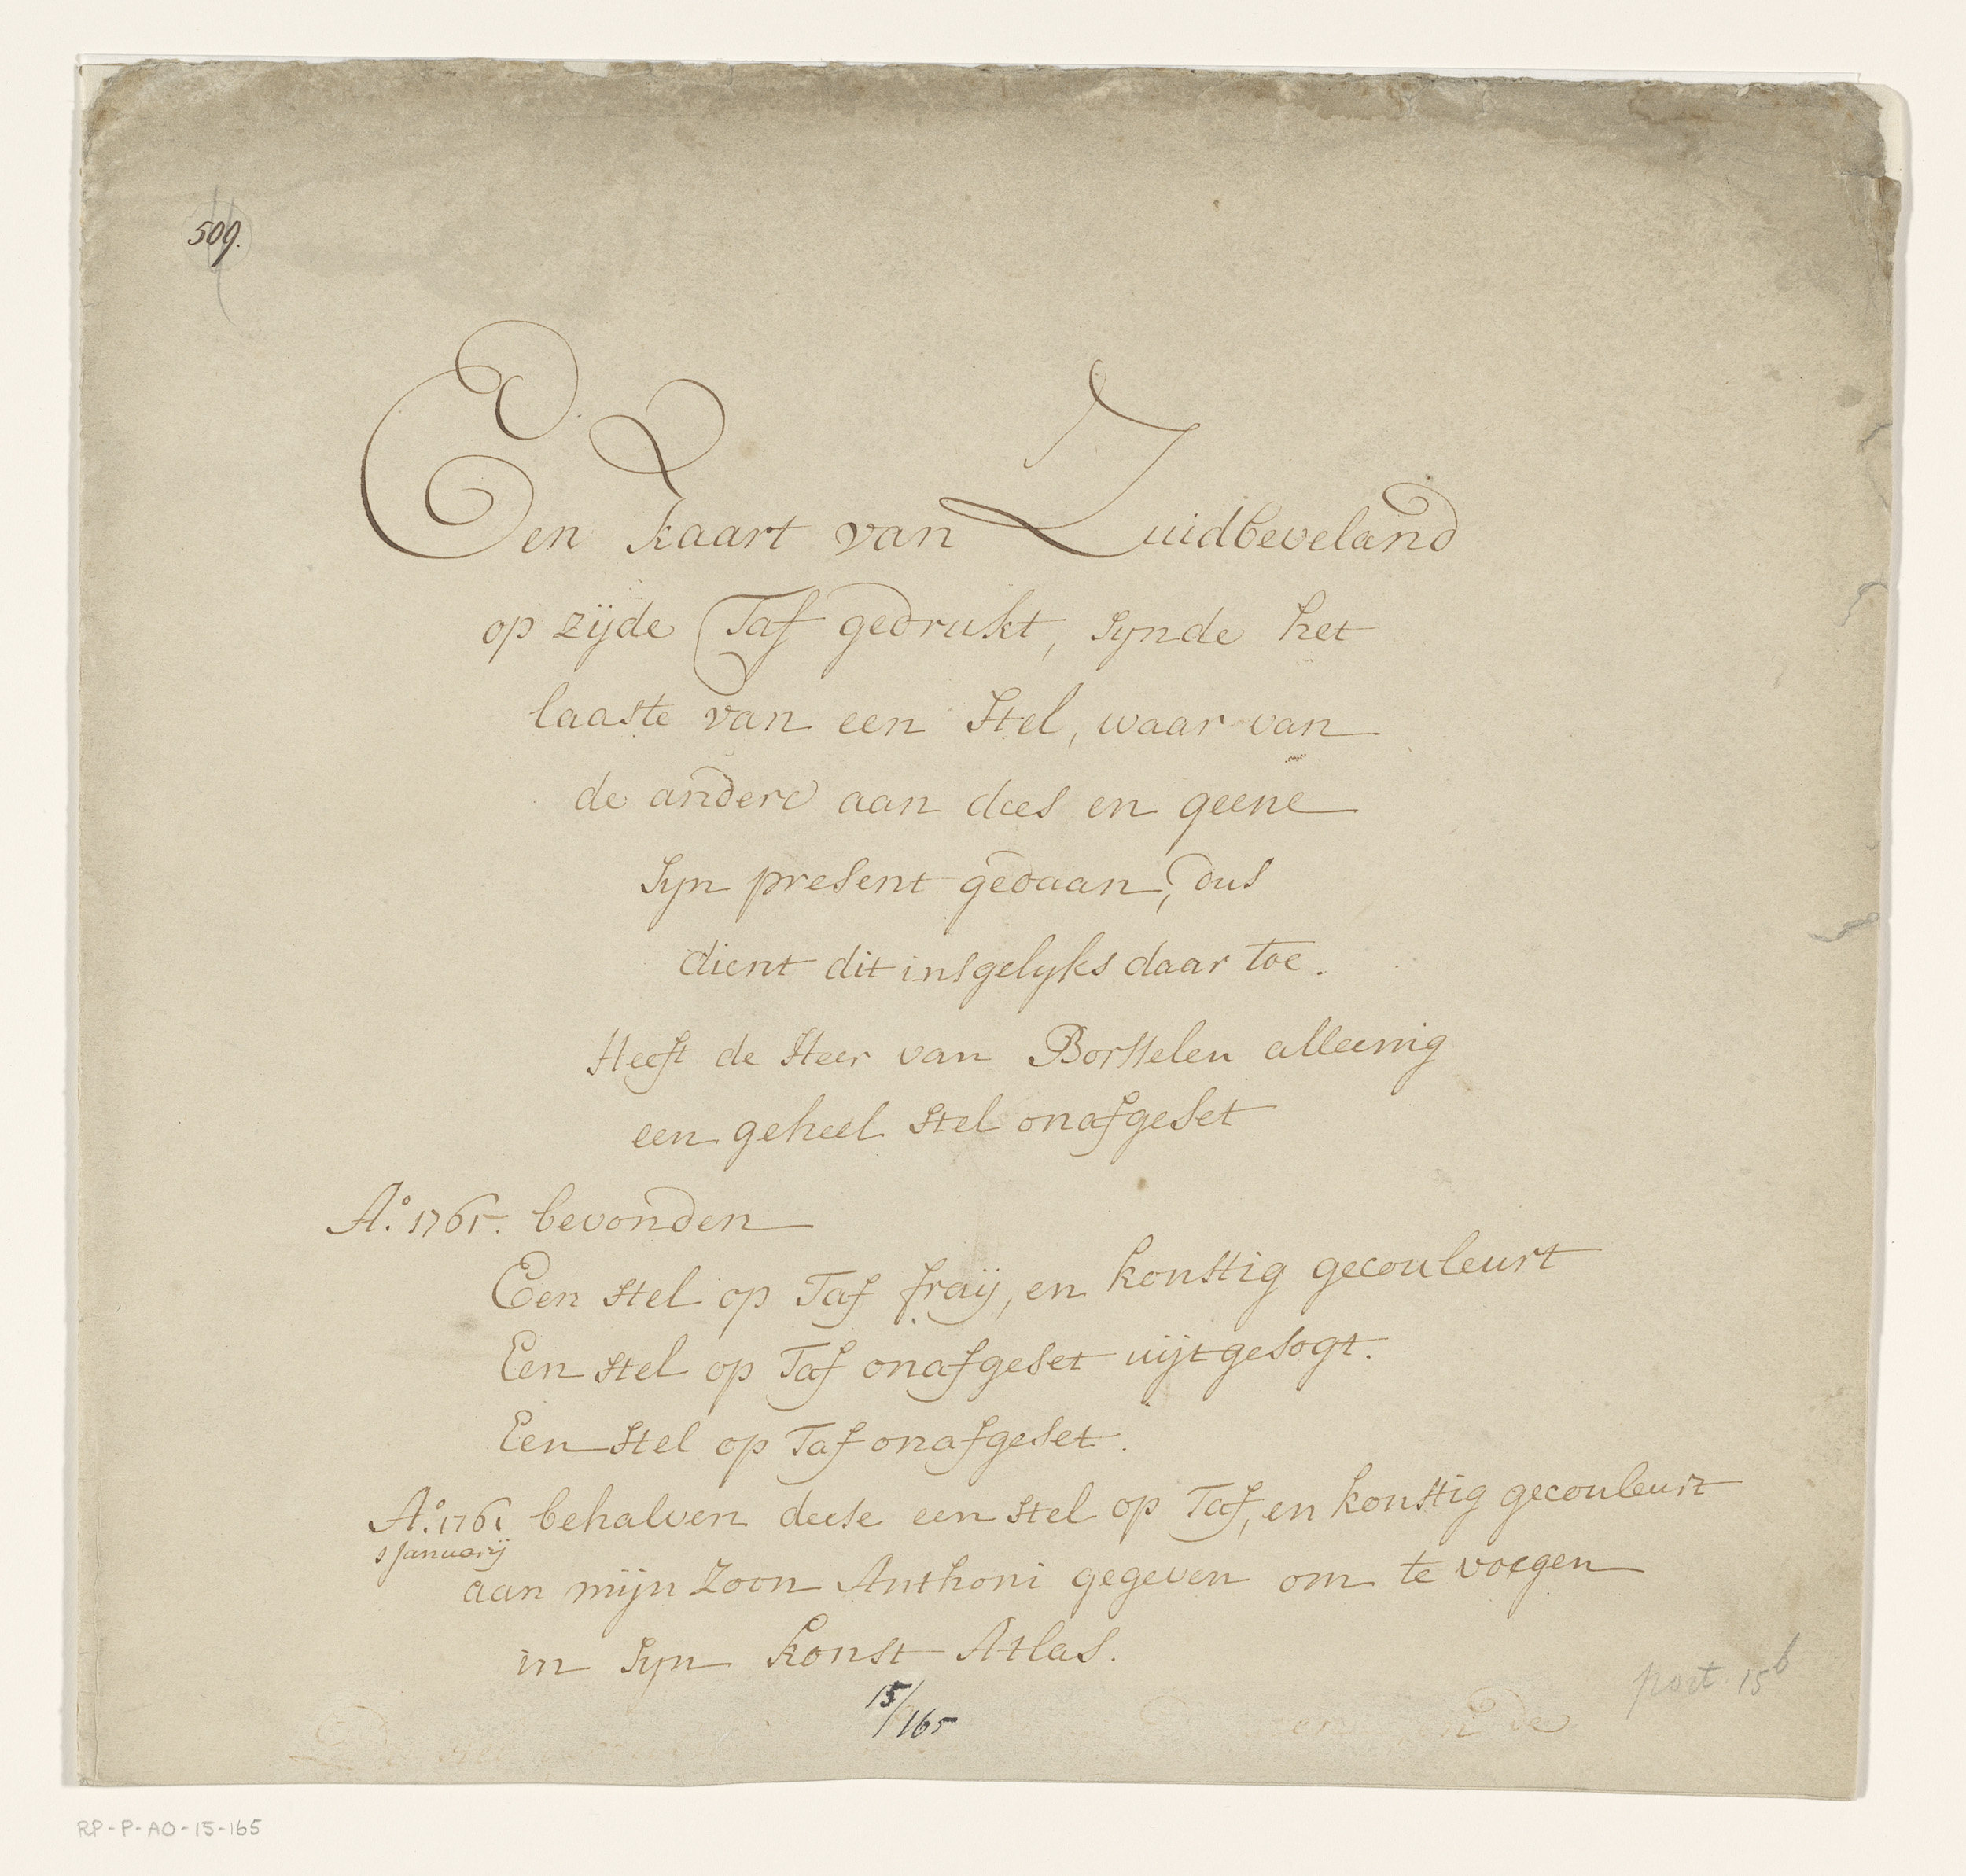 509.
Een kaart van Zuidbeveland
op zijde Taf gedrukt, synde het
laaste van een Stel, waar van
de andere aan dees en geene
Syn present gedaan, dus
dient dit insgelyks daar toe.
Heeft de Heer van Borsselen alleenig
een geheel Stel onafgeset
A.º 1761. bevonden
Een stel op Taf fraij, en konstig gecouleurt
Een stel op Taf onafgeset uijtgesogt.
Een stel op Taf onafgeset.
A.º 1761 behalven deese een stel op Taf, en konstig gecouleurt
1 Januarij
aan mijn Zoon Anthoni gegeven om te voegen
in Syn Konst-Atlas.
15/165
port. 15b
RP-P-AO-15-165